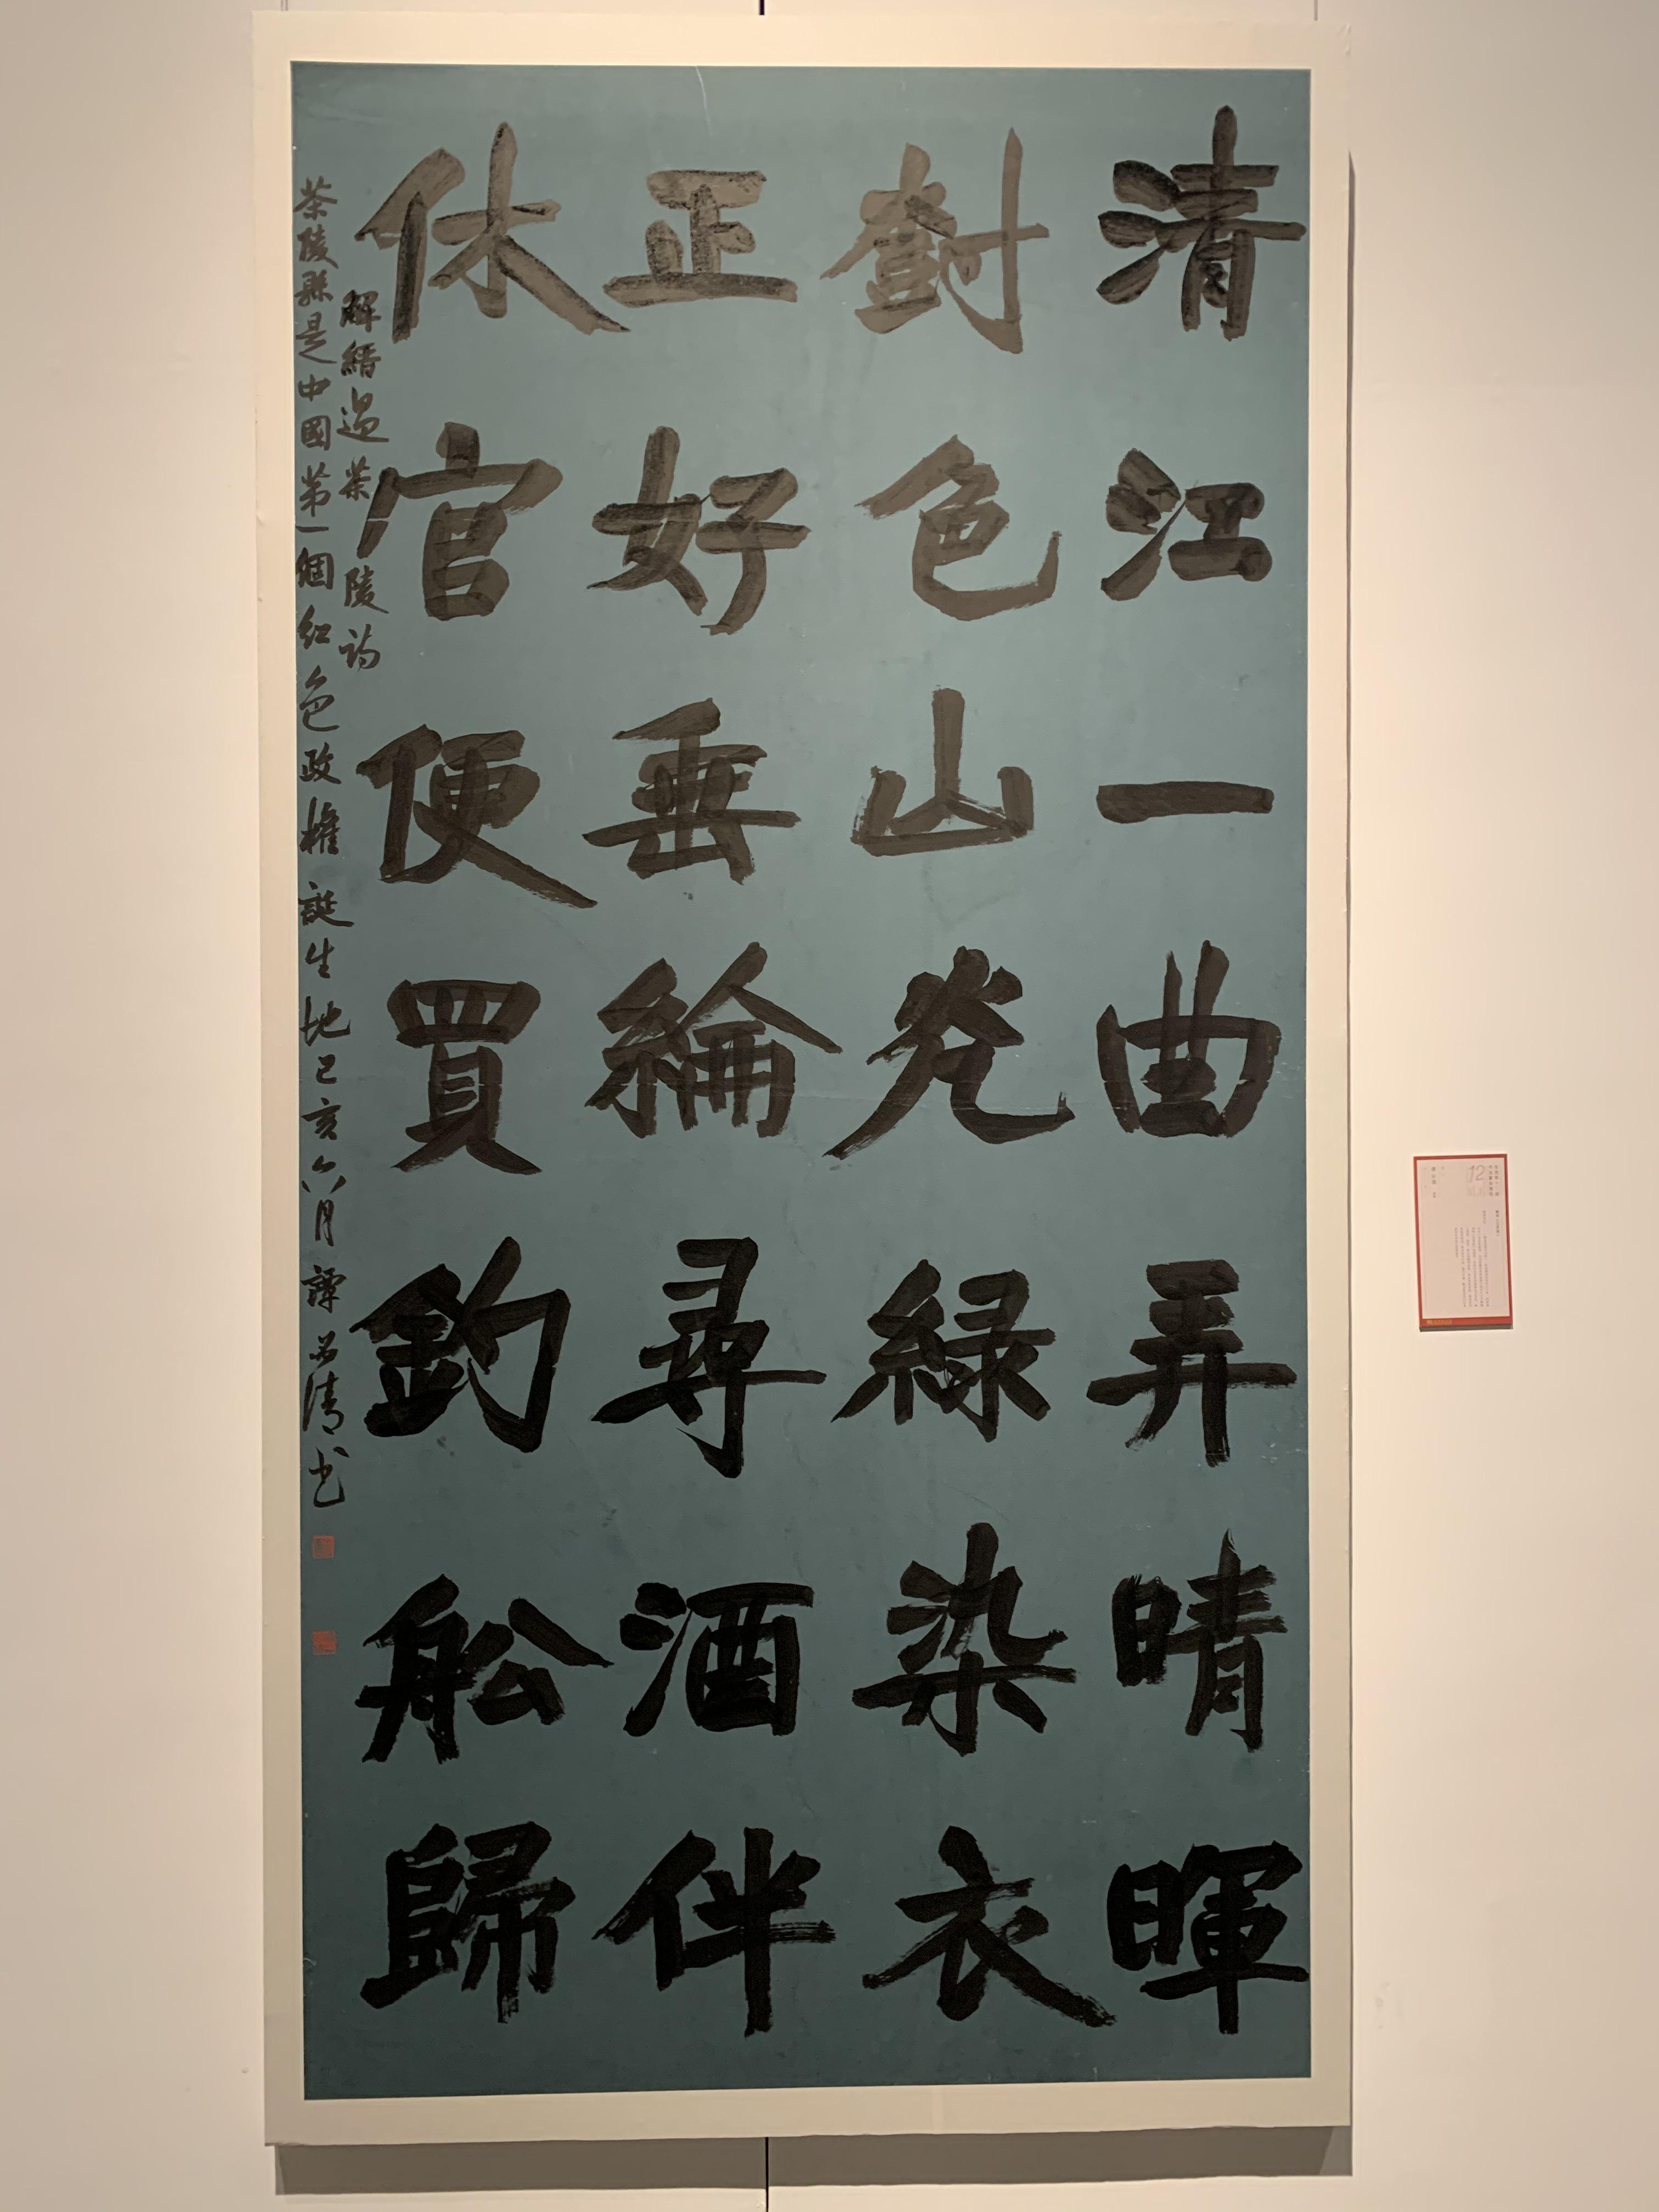 清江一曲弄晴暉
對色山光綠染衣
正好垂綸尋酒伴
休官便買釣舩歸
解縉過茶陵詩
茶陵縣是中國第一個紅色政權誕生地己亥六月譚清书
12